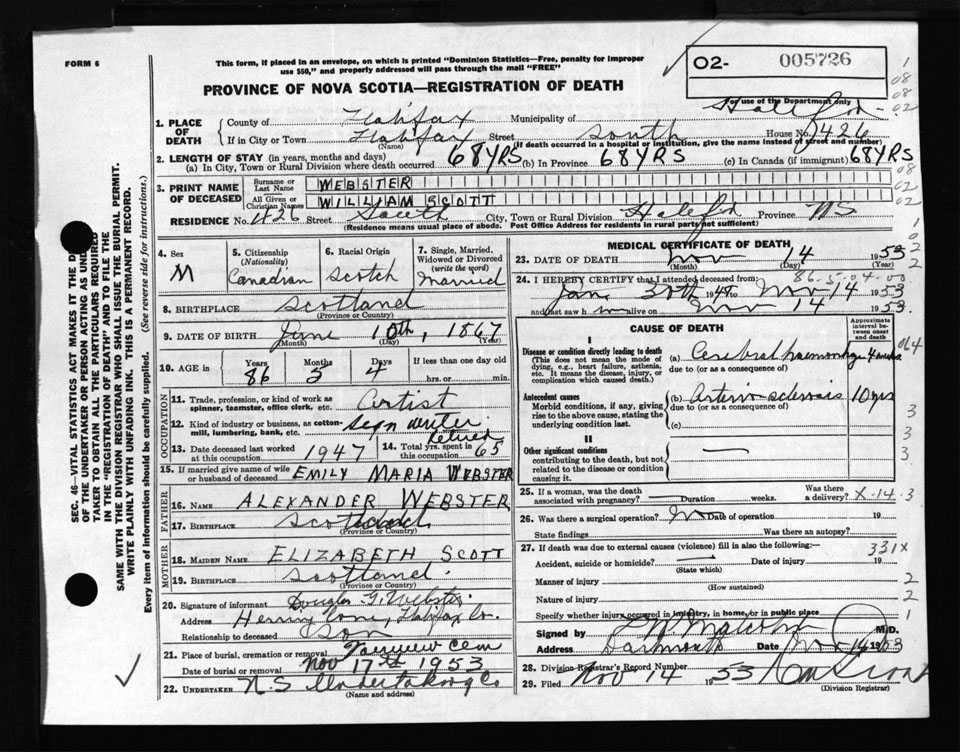 FORM 6
This form, if placed in an envelope, on which is printed "Dominion Statistics—Free, penalty for improper
use $50," and properly addressed will pass through the mail "FREE"
02- 005726
PROVINCE OF NOVA SCOTIA—REGISTRATION OF DEATH
For use of the Department only
1. PLACE OF DEATH
County of Halifax Municipality of
If in City or Town Halifax Street South House No. 426
(Name) (If death occurred in a hospital or institution, give the name instead of street and number)
2. LENGTH OF STAY (in years, months and days)
(a) In City, Town or Rural Division where death occurred 68 YRS (b) In Province 68 YRS (c) In Canada (if immigrant) 68 YRS
3. PRINT NAME OF DECEASED
Surname or Last Name WEBSTER
All Given or Christian Names WILLIAM SCOTT
RESIDENCE No. 426 Street South City, Town or Rural Division Halifax Province NS
(Residence means usual place of abode. Post Office Address for residents in rural parts not sufficient)
4. Sex M
5. Citizenship (Nationality) Canadian
6. Racial Origin Scotch
7. Single, Married, Widowed or Divorced (write the word) Married
8. BIRTHPLACE Scotland
(Province or Country)
9. DATE OF BIRTH June 10th, 1867
(Month) (Day) (Year)
10. AGE in Years 86 Months 5 Days 4 If less than one day old
hrs. or min.
OCCUPATION
11. Trade, profession, or kind of work as Artist
spinner, teamster, office clerk, etc.
12. Kind of industry or business, as cotton- sign writer
mill, lumbering, bank, etc. Retired
13. Date deceased last worked at this occupation 1947
14. Total yrs. spent in this occupation 65
15. If married give name of wife or husband of deceased EMILY MARIA WEBSTER
FATHER
16. NAME ALEXANDER WEBSTER
17. BIRTHPLACE
(Province or Country)
MOTHER
18. MAIDEN NAME ELIZABETH SCOTT
19. BIRTHPLACE Scotland
(Province or Country)
20. Signature of informant Douglas G. Webster
Address Herring Cove, Halifax Co.
Relationship to deceased son
21. Place of burial, cremation or removal Fairview Cem
Date of burial or removal Nov 17th 1953
22. UNDERTAKER N.S. Undertaking Co
(Name and address)
MEDICAL CERTIFICATE OF DEATH
23. DATE OF DEATH Nov 14 1953
(Month) (Day) (Year)
86-5-04-00
24. I HEREBY CERTIFY that I attended deceased from:
Jan 30th 19 to Nov 14 1953
and last saw him alive on Nov 14 1953.
CAUSE OF DEATH
Approximate interval between onset and death
I
Disease or condition directly leading to death (a) Cerebral haemorrhage 4 weeks
(This does not mean the mode of dying, e.g., heart failure, asthenia, etc. It means the disease, injury, or complication which caused death.)
due to (or as a consequence of)
Antecedent causes (b) Arterio-sclerosis 10 yrs
Morbid conditions, if any, giving rise to the above cause, stating the underlying condition last.
due to (or as a consequence of)
(c)
II
Other significant conditions
contributing to the death, but not related to the disease or condition causing it.
25. If a woman, was the death associated with pregnancy? Duration weeks. Was there a delivery?
X-14-3
26. Was there a surgical operation? No Date of operation 19
State findings Was there an autopsy?
27. If death was due to external causes (violence) fill in also the following:—
331X
Accident, suicide or homicide? Date of injury 19
(State which)
Manner of injury
(How sustained)
Nature of injury
Specify whether injury occurred in industry, in home, or in public place
Signed by Malcolm M.D.
Address Dartmouth Date Nov 14 1953
28. Division Registrar's Record Number
29. Filed Nov 14 1953
(Division Registrar)
SEC. 46—VITAL STATISTICS ACT MAKES IT THE
OF THE UNDERTAKER OR PERSON ACTING AS
TAKER TO OBTAIN ALL THE PARTICULARS REQUIRED
IN THE "REGISTRATION OF DEATH" AND TO FILE THE
SAME WITH THE DIVISION REGISTRAR WHO SHALL ISSUE THE BURIAL PERMIT.
WRITE PLAINLY WITH UNFADING INK. THIS IS A PERMANENT RECORD.
Every item of information should be carefully supplied. (See reverse side for instructions.)